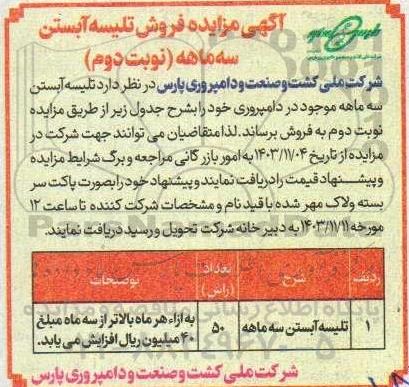 آگهی مزایده فروش تلیسه آبستن
سه ماهه (نوبت دوم)
شرکت ملی کشت و صنعت و دامپروری پارس در نظر دارد تلیسه آبستن
سه ماهه موجود در دامپروری خود را بشرح جدول زیر از طریق مزایده
نوبت دوم به فروش برساند. لذا متقاضیان می توانند جهت شرکت در
مزایده از تاریخ ۱۴۰۳/۱۱/۰۴ به امور بازرگانی مراجعه و برگ شرایط مزایده
و پیشنهاد قیمت را دریافت نمایند و پیشنهاد خود را بصورت پاکت سر
بسته ولاک مهر شده با قید نام و مشخصات شرکت کننده تا ساعت ۱۲
مورخه ۱۴۰۳/۱۱/۱۱ به دبیر خانه شرکت تحویل و رسید دریافت نمایند.
ردیف شرح تعداد (راس) توضیحات
۱ تلیسه آبستن سه ماهه ۵۰ به ازاء هر ماه بالاتر از سه ماه مبلغ
۴۰ میلیون ریال افزایش می یابد.
شرکت ملی کشت و صنعت و دامپروری پارس